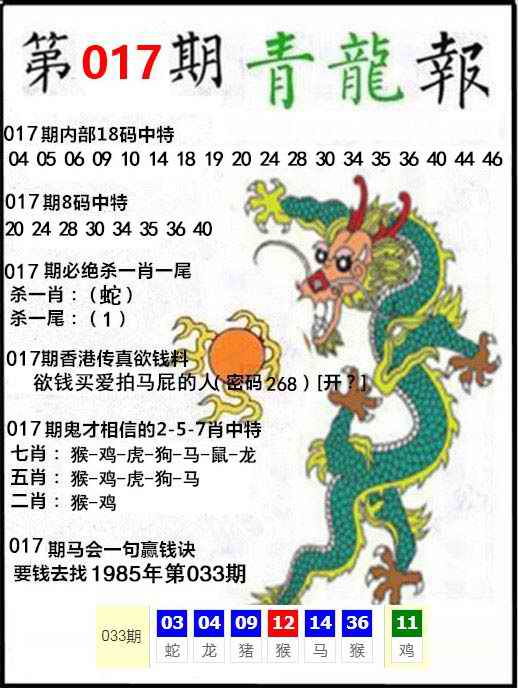 第017期青龍報
017期内部18码中特
04 05 06 09 10 14 18 19 20 24 28 30 34 35 36 40 44 46
017期8码中特
20 24 28 30 34 35 36 40
017 期必绝杀一肖一尾
杀一肖：（蛇）
杀一尾：（1）
017期香港传真欲钱料
欲钱买爱拍马屁的人（密码268）[开？]
017期鬼才相信的2-5-7肖中特
七肖：猴-鸡-虎-狗-马-鼠-龙
五肖：猴-鸡-虎-狗-马
二肖：猴-鸡
017期马会一句赢钱诀
要钱去找1985年第033期
033期 03 04 09 12 14 36 11
蛇 龙 猪 猴 马 猴 鸡